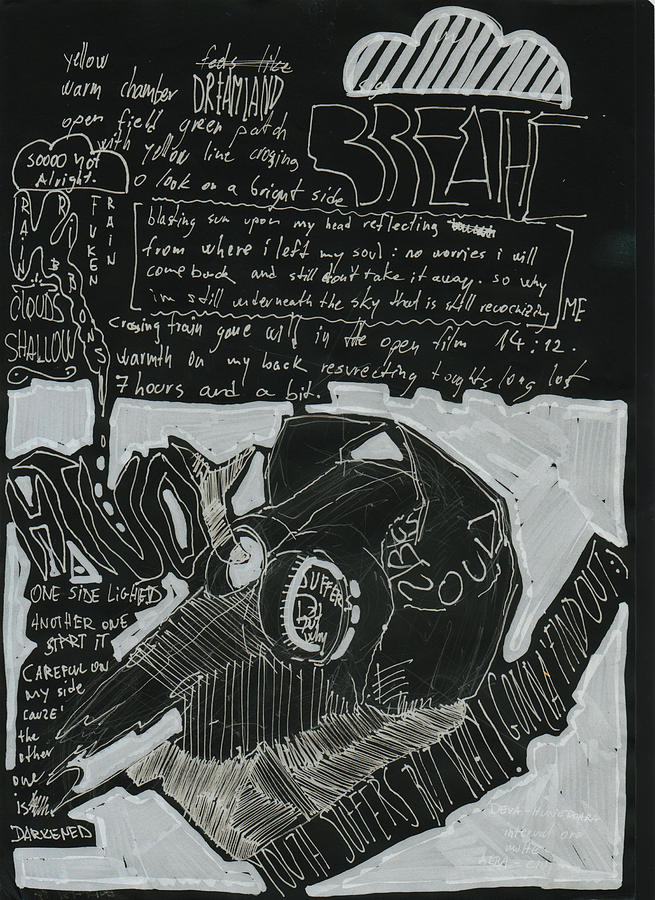 yellow
feels like
warm chamber DREAMLAND
open field green patch
with yellow line crossing
O look on a bright side
BREATHE
SOOOO NOT
Alright.
RAIN
FUKEN
RAIN
RIBBONS
CLOUDS
SHALLOW
blasting sun upon my head reflecting
from where i left my soul; no worries i will
come back and still don't take it away. so why
im still underneath the sky that is still recocnizing ME
Crossing train gone will in the open film 14:12.
warmth on my back resurecting toughts long lost
7 hours and a bit.
ONE SIDE LIGHTED
ANOTHER ONE
CAREFUL ON
my side
cauze'
the
other
one
is
DARKENED
SUFFER
but
why
OUL
YOUTH SUFFERS BUT WHY I GONNA FIND OUT:)
DEVA - HUNEDOARA